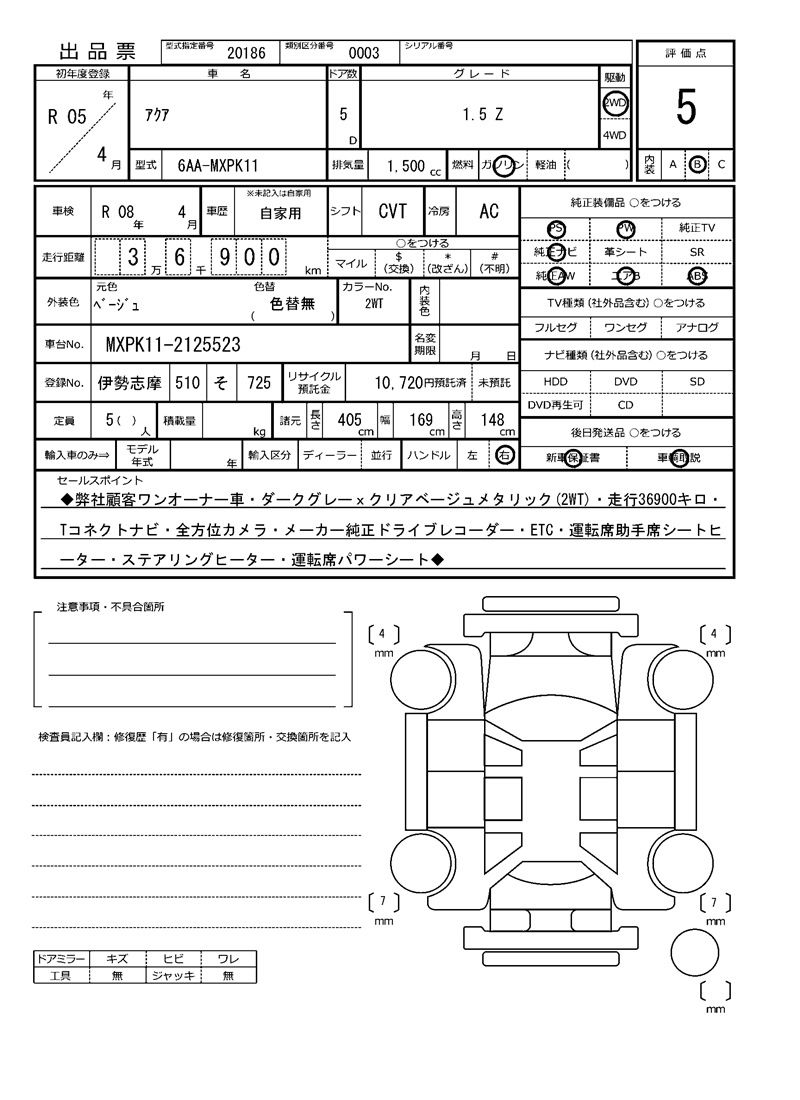 出品票 型式指定番号 20186 類別区分番号 0003 シリアル番号
評価点
5
内装 A B C
初年度登録 車名 ドア数 グレード 駆動
R 05 年 4 月 アクア 5 D 1.5 Z 2WD
4WD
型式 6AA-MXPK11 排気量 1,500 cc 燃料 ガソリン 軽油 ( )
車検 R 08 年 4 月 車歴 ※未記入は自家用 自家用 シフト CVT 冷房 AC
走行距離 3 万 6 千 9 0 0 km
○をつける
マイル $ (交換) * (改ざん) # (不明)
外装色 元色 ベージュ 色替 ( 色替無 ) カラーNo. 2WT 内装色
車台No. MXPK11-2125523 名変期限 月 日
登録No. 伊勢志摩 510 そ 725 リサイクル預託金 10,720円預託済 未預託
定員 5 ( ) 人 積載量 kg 諸元 長さ 405 cm 幅 169 cm 高さ 148 cm
輸入車のみ⇒ モデル年式 年 輸入区分 ディーラー 並行 ハンドル 左 右
純正装備品 ○をつける
PS PW 純正TV
純正ナビ 革シート SR
純正AW エアB ABS
TV種類(社外品含む)○をつける
フルセグ ワンセグ アナログ
ナビ種類(社外品含む)○をつける
HDD DVD SD
DVD再生可 CD
後日発送品 ○をつける
新車保証書 車輌取説
セールスポイント
◆弊社顧客ワンオーナー車・ダークグレーxクリアベージュメタリック(2WT)・走行36900キロ・
Tコネクトナビ・全方位カメラ・メーカー純正ドライブレコーダー・ETC・運転席助手席シートヒ
ーター・ステアリングヒーター・運転席パワーシート◆
注意事項・不具合箇所
検査員記入欄：修復歴「有」の場合は修復箇所・交換箇所を記入
ドアミラー キズ ヒビ ワレ
工具 無 ジャッキ 無
[ 4 ] mm [ 4 ] mm
[ 7 ] mm [ 7 ] mm
[ ] mm